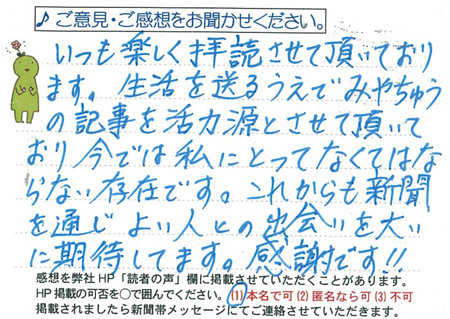 ♪ご意見・ご感想をお聞かせください。
いつも楽しく拝読させて頂いており
ます。生活を送るうえでみやちゅう
の記事を活力源とさせて頂いて
おり今では私にとってなくてはな
らない存在です。これからも新聞
を通じよい人との出会いを大い
に期待してます。感謝です!!
感想を弊社HP「読者の声」欄に掲載させていただくことがあります。
HP掲載の可否を○で囲んでください。(1)本名で可 (2)匿名なら可 (3)不可
掲載されましたら新聞帯メッセージにてご連絡させていただきます。